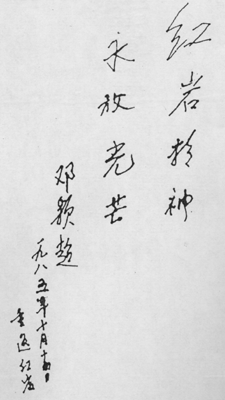 红岩精神
永放光芒
邓颖超
一九八五年十月十四日
重返红岩